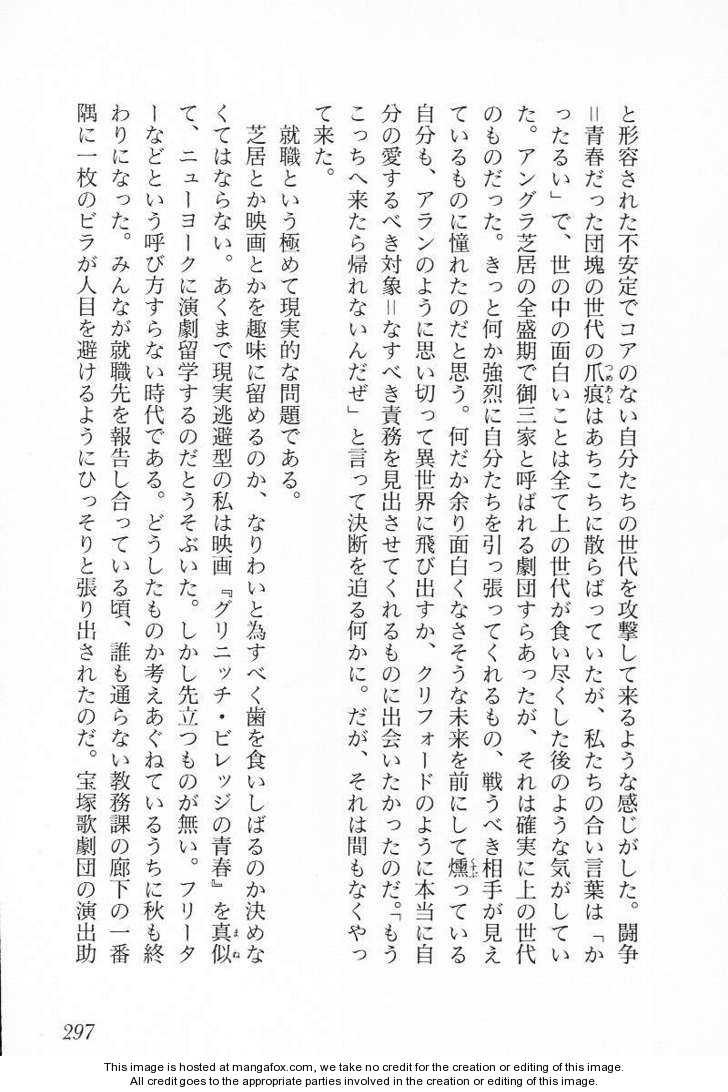 と形容された不安定でコアのない自分たちの世代を攻撃して来るような感じがした。闘争
＝青春だった団塊の世代の爪痕はあちこちに散らばっていたが、私たちの合い言葉は「か
つめあと
ったるい」で、世の中の面白いことは全て上の世代が食い尽くした後のような気がしてい
た。アングラ芝居の全盛期で御三家と呼ばれる劇団すらあったが、それは確実に上の世代
のものだった。きっと何か強烈に自分たちを引っ張ってくれるもの、戦うべき相手が見え
ているものに憧れたのだと思う。何だか余り面白くなさそうな未来を前にして燻っている
くすぶ
自分も、アランのように思い切って異世界に飛び出すか、クリフォードのように本当に自
分の愛するべき対象＝なすべき責務を見出させてくれるものに出会いたかったのだ。「もう
こっちへ来たら帰れないんだぜ」と言って決断を迫る何かに。だが、それは間もなくやっ
て来た。
就職という極めて現実的な問題である。
芝居とか映画とかを趣味に留めるのか、なりわいと為すべく歯を食いしばるのか決めな
くてはならない。あくまで現実逃避型の私は映画『グリニッチ・ビレッジの青春』を真似
まね
て、ニューヨークに演劇留学するのだとうそぶいた。しかし先立つものが無い。フリータ
ーなどという呼び方すらない時代である。どうしたものか考えあぐねているうちに秋も終
わりになった。みんなが就職先を報告し合っている頃、誰も通らない教務課の廊下の一番
隅に一枚のビラが人目を避けるようにひっそりと張り出されたのだ。宝塚歌劇団の演出助
297
This image is hosted at mangafox.com, we take no credit for the creation or editing of this image.
All credit goes to the appropriate parties involved in the creation or editing of this image.